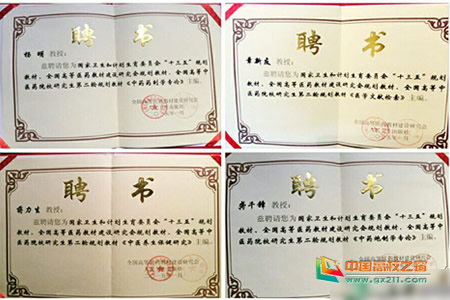 聘 书
杨 明 教授：
兹聘请您为国家卫生和计划生育委员会“十三五”规划
教材、全国高等医药教材建设研究会规划教材、全国高等中
医药院校研究生第二轮规划教材《中药药剂学专论》主编。
全国高等医药教材建设研究会
聘 书
章新友 教授：
兹聘请您为国家卫生和计划生育委员会“十三五”规划
教材、全国高等医药教材建设研究会规划教材、全国高等中
医药院校研究生第二轮规划教材《医学文献检索》主编。
全国高等医药教材建设研究会
聘 书
蒋力生 教授：
兹聘请您为国家卫生和计划生育委员会“十三五”规划
教材、全国高等医药教材建设研究会规划教材、全国高等中
医药院校研究生第二轮规划教材《中医养生保健研究》主编。
全国高等医药教材建设研究会
聘 书
龚千锋 教授：
兹聘请您为国家卫生和计划生育委员会“十三五”规划
教材、全国高等医药教材建设研究会规划教材、全国高等中
医药院校研究生第二轮规划教材《中药炮制学专论》主编。
中国高校之窗
www.gx211.com